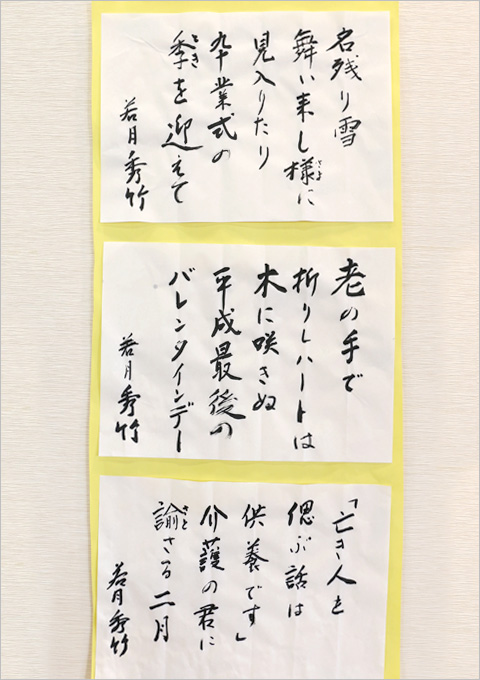 名残り雪
舞い来し様に
さま
見入りたり
卒業式の
季を迎えて
とき
若月秀竹
老の手で
折りしハートは
木に咲きぬ
平成最後の
バレンタインデー
若月秀竹
「亡き人を
偲ぶ話は
供養です」
介護の君に
諭さる二月
さと
若月秀竹